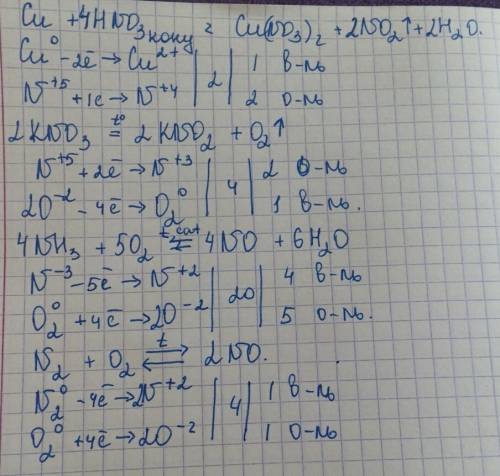 Cu + 4HNO₃ конц = Cu(NO₃)₂ + 2NO₂↑ + 2H₂O.
Cu⁰ - 2ē → Cu²⁺ | 2 | 1 в-ль
N⁺⁵ + 1ē → N⁺⁴ | | 2 о-ль
2KNO₃ =t° 2KNO₂ + O₂↑
N⁺⁵ + 2ē → N⁺³ | 4 | 2 о-ль
2O⁻² - 4ē → O₂⁰ | | 1 в-ль.
4NH₃ + 5O₂ ⇆ t, cat 4NO + 6H₂O
N⁻³ - 5ē → N⁺² | 20 | 4 в-ль
O₂⁰ + 4ē → 2O⁻² | | 5 о-ль.
N₂ + O₂ ⇄ t 2NO.
N₂⁰ - 4ē → 2N⁺² | 4 | 1 в-ль
O₂⁰ + 4ē → 2O⁻² | | 1 о-ль